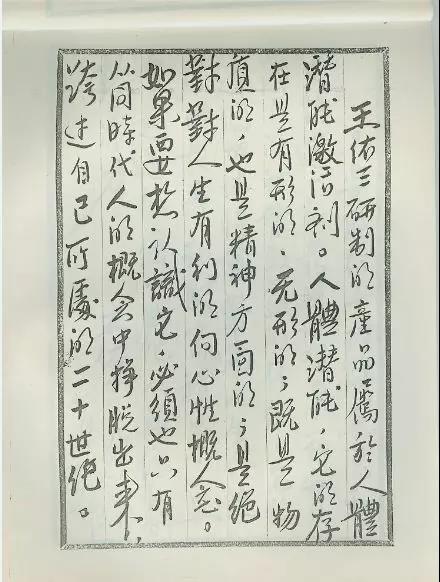 王佑三研制的產品屬於人體
潛能激活剂。人體潛能,它的存
在是有形的、无形的;既是物
質的,也是精神方面的;是絕
對對人生有利的向心性概念。
如果要想认識它,必須也只有
从同時代人的概念中掙脫出来,
跨过自己所處的二十世纪。